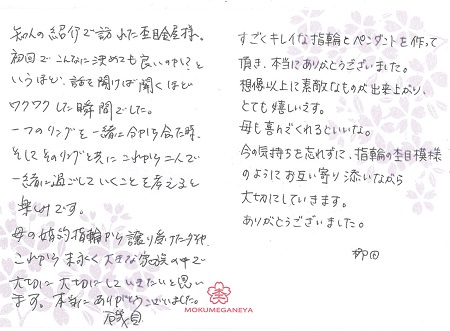 知人の紹介で訪れた杢目金屋様。
初回でこんなに決めても良いのか!?と
いうほど、話を聞けば聞くほど
ワクワクした瞬間でした。
一つのリングを一緒に分かち合た時、
そしてそのリングと共にこれから二人で
一緒に過ごしていくことを考えると
楽しみです。
母の婚約指輪から譲り受けたダイヤ、
これから末永く大きな家族の中で
大切に大切にしていきたいと思い
ます。本当にありがとうございました。
磯貝
すごくキレイな指輪とペンダントを作って
頂き、本当にありがとうございました。
想像以上に素敵なものが出来上がり、
とても嬉しいです。
母も喜んでくれるといいな。
今の気持ちを忘れずに、指輪の杢目模様
のようにお互い寄り添いながら
大切にしていきます。
ありがとうございました。
柳田
MOKUMEGANEYA